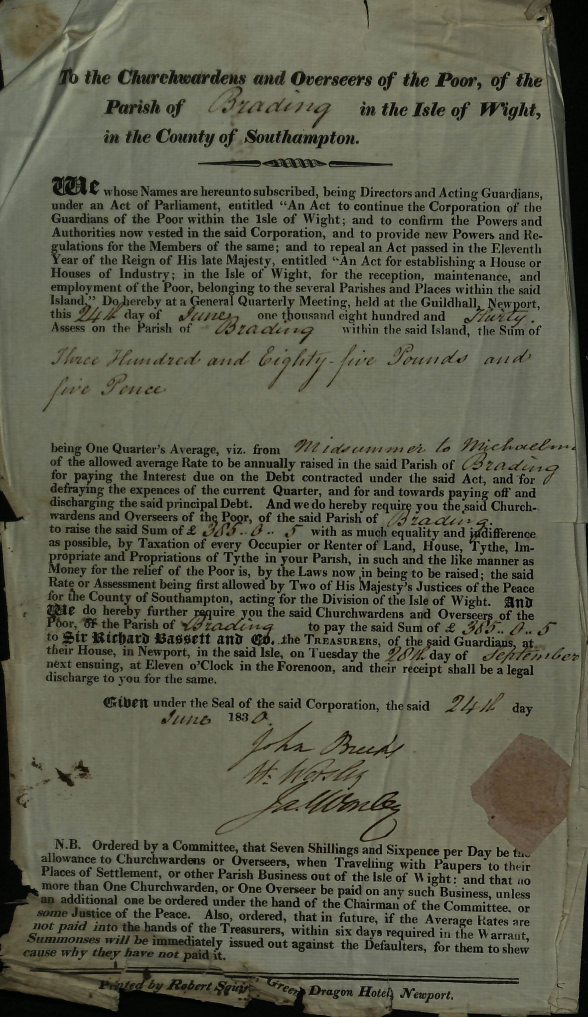 To the Churchwardens and Overseers of the Poor, of the
Parish of Brading in the Isle of Wight,
in the County of Southampton.
We whose Names are hereunto subscribed, being Directors and Acting Guardians,
under an Act of Parliament, entitled "An Act to continue the Corporation of the
Guardians of the Poor within the Isle of Wight; and to confirm the Powers and
Authorities now vested in the said Corporation, and to provide new Powers and Re-
gulations for the Members of the same; and to repeal an Act passed in the Eleventh
Year of the Reign of His late Majesty, entitled "An Act for establishing a House or
Houses of Industry; in the Isle of Wight, for the reception, maintenance, and
employment of the Poor, belonging to the several Parishes and Places within the said
Island." Do hereby at a General Quarterly Meeting, held at the Guildhall, Newport,
this 24th day of June one thousand eight hundred and Thirty.
Assess on the Parish of Brading within the said Island, the Sum of
Three Hundred and Eighty-five Pounds and
five Pence
being One Quarter's Average, viz. from Midsummer to Michaelm
of the allowed average Rate to be annually raised in the said Parish of Brading
for paying the Interest due on the Debt contracted under the said Act, and for
defraying the expences of the current Quarter, and for and towards paying off and
discharging the said principal Debt. And we do hereby require you the said Church-
wardens and Overseers of the Poor, of the said Parish of Brading.
to raise the said Sum of £ 385..0..5 with as much equality and indifference
as possible, by Taxation of every Occupier or Renter of Land, House, Tythe, Im-
propriate and Propriations of Tythe in your Parish, in such and the like manner as
Money for the relief of the Poor is, by the Laws now in being to be raised; the said
Rate or Assessment being first allowed by Two of His Majesty's Justices of the Peace
for the County of Southampton, acting for the Division of the Isle of Wight. And
We do hereby further require you the said Churchwardens and Overseers of the
Poor, of the Parish of Brading to pay the said Sum of £ 385..0..5
to Sir Richard Bassett and Co. the TREASURERS, of the said Guardians, at
their House, in Newport, in the said Isle, on Tuesday the 28th day of September
next ensuing, at Eleven o'Clock in the Forenoon, and their receipt shall be a legal
discharge to you for the same.
Given under the Seal of the said Corporation, the said 24th day
June 1830.
John
W. Worsley
Jas Worsley
N.B. Ordered by a Committee, that Seven Shillings and Sixpence per Day be the
allowance to Churchwardens or Overseers, when Travelling with Paupers to their
Places of Settlement, or other Parish Business out of the Isle of Wight: and that no
more than One Churchwarden, or One Overseer be paid on any such Business, unless
an additional one be ordered under the hand of the Chairman of the Committee, or
some Justice of the Peace. Also, ordered, that in future, if the Average Rates are
not paid into the hands of the Treasurers, within six days required in the Warrant,
Summonses will be immediately issued out against the Defaulters, for them to shew
cause why they have not paid it.
Printed by Robert Green Dragon Hotel, Newport.